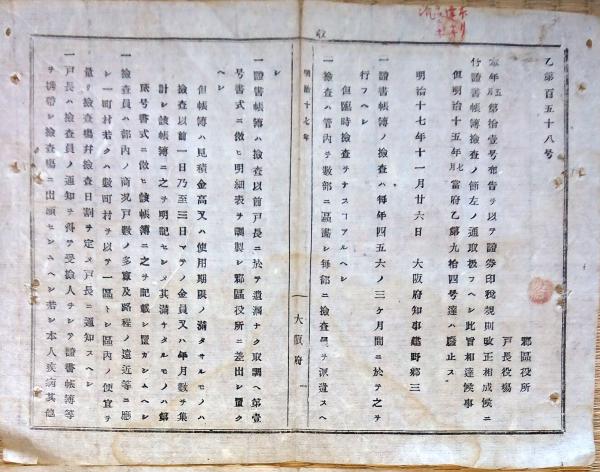 乙第百五十八号
郡區役所
戸長役場
本年五月第拾壹号布告ヲ以テ證券印税規則改正相成候ニ
付證書帳簿檢査ノ節左ノ通取扱フヘシ此旨相達候事
但明治十五年七月當府乙第九拾四号達ハ廢止ス
明治十七年十一月廿六日　大阪府知事建野郷三
一證書帳簿ノ檢査ハ毎年四五六ノ三ヶ月間ニ於テ之ヲ
行フヘシ
但臨時檢査ヲナスコアルヘシ
一檢査ハ管内ヲ數部ニ區畫シ毎部ニ檢査員ヲ派遣スヘ
明治十七年
大阪府
シ
一證書帳簿ハ檢査以前戸長ニ於テ遺漏ナク取調ヘ第壹
号書式ニ倣ヒ明細表ヲ調製シ郡區役所ニ差出シ置ク
但帳簿ハ見積金高又ハ使用期限ノ滿タサルモノハ
檢査以前一日乃至三日マテノ金員又ハ年月數ヲ集
計シ該帳簿ニ之ヲ明記セシメ其滿タルモノハ第
号書式ニ倣ヒ該帳簿ニ之ヲ記載シ置カシムヘシ
一檢査員ハ部内ノ商況戸數ノ多寡及路程ノ遠近等ニ應
シ一町村若クハ數町村ヲ以テ一區トシ區内ノ便宜ヲ
量リ檢査場并檢査日割ヲ定メ戸長ニ通知スヘシ
一戸長ハ檢査員ノ通知ヲ得テ受檢人ヲシテ證書帳簿等
ヲ携帶シ檢査場ニ出頭セシムヘシ若シ本人疾病其他